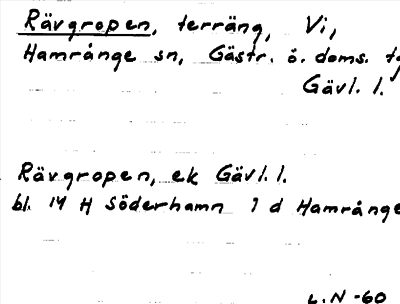 Rävgropen, terräng, Vi,
Hamrånge sn, Gästr. ö. doms.
Gävl. l.
Rävgropen, ek Gävl. l.
bl. 14 H Söderhamn 1 d Hamrånge
L.N -60